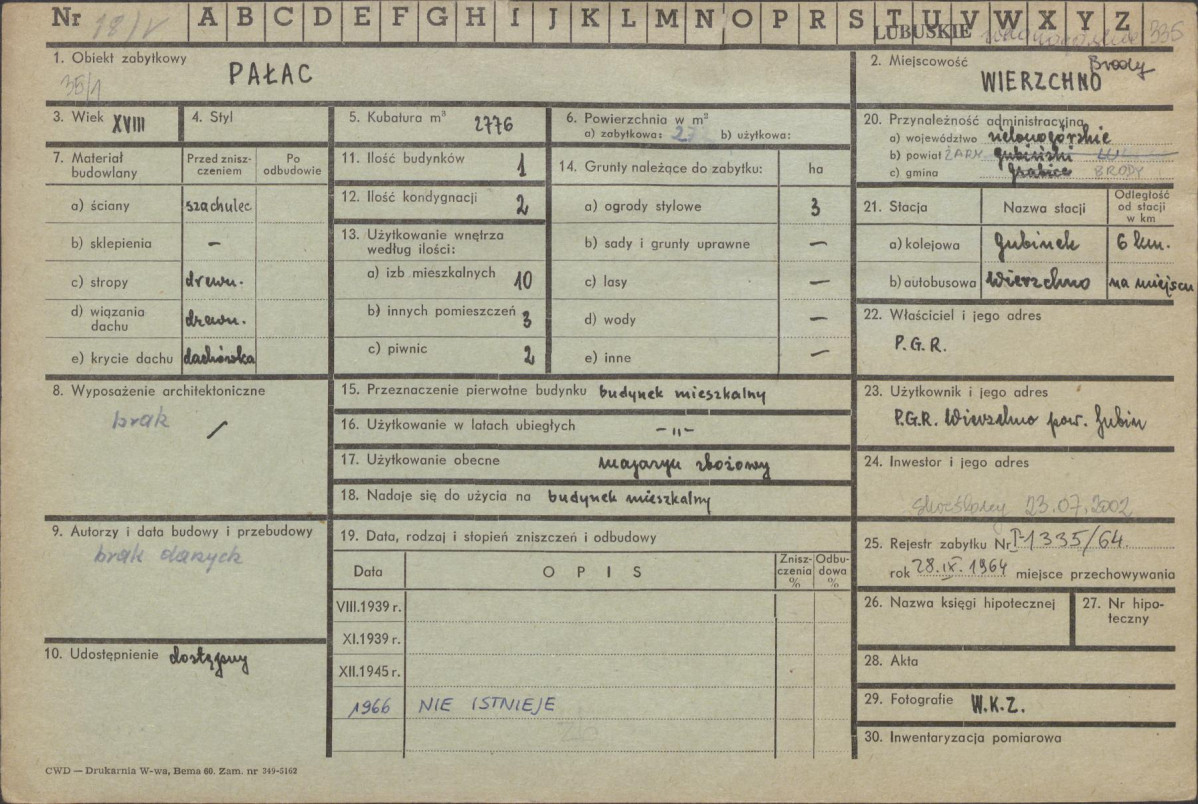 Nr 18/V A B C D E F G H I J K L M N O P R S T U V W X Y Z 335
LUBUSKIE
1. Obiekt zabytkowy
PAŁAC
35/1
2. Miejscowość Brody
WIERZCHNO
3. Wiek XVIII
4. Styl
5. Kubatura m³ 2776
6. Powierzchnia w m²
a) zabytkowa: b) użytkowa:
20. Przynależność administracyjna
a) województwo zielonogórskie
b) powiat ŻARY gubiński
c) gmina Grabice BRODY
7. Materiał budowlany
Przed zniszczeniem
Po odbudowie
a) ściany szachulec
b) sklepienia —
c) stropy drewn.
d) wiązania dachu drewn.
e) krycie dachu dachówka
11. Ilość budynków 1
12. Ilość kondygnacji 2
13. Użytkowanie wnętrza według ilości:
a) izb mieszkalnych 10
b) innych pomieszczeń 3
c) piwnic 2
14. Grunty należące do zabytku: ha
a) ogrody stylowe 3
b) sady i grunty uprawne —
c) lasy —
d) wody —
e) inne —
21. Stacja Nazwa stacji Odległość od stacji w km
a) kolejowa Gubinek 6 km.
b) autobusowa Wierzchno na miejscu
22. Właściciel i jego adres
P.G.R.
8. Wyposażenie architektoniczne
brak
15. Przeznaczenie pierwotne budynku budynek mieszkalny
16. Użytkowanie w latach ubiegłych -"-
17. Użytkowanie obecne magazyn zbożowy
18. Nadaje się do użycia na budynek mieszkalny
23. Użytkownik i jego adres
P.G.R. Wierzchno pow. Gubin
24. Inwestor i jego adres
skreślony 23.07.2002
9. Autorzy i data budowy i przebudowy
brak danych
19. Data, rodzaj i stopień zniszczeń i odbudowy
Data OPIS Zniszczenia % Odbudowa %
VIII.1939 r.
XI.1939 r.
XII.1945 r.
1966 NIE ISTNIEJE
25. Rejestr zabytku Nr 1335/64.
rok 28.IX.1964 miejsce przechowywania
26. Nazwa księgi hipotecznej
27. Nr hipoteczny
10. Udostępnienie dostępny
28. Akta
29. Fotografie W.K.Z.
30. Inwentaryzacja pomiarowa
CWD — Drukarnia W-wa, Bema 60. Zam. nr 349-5162